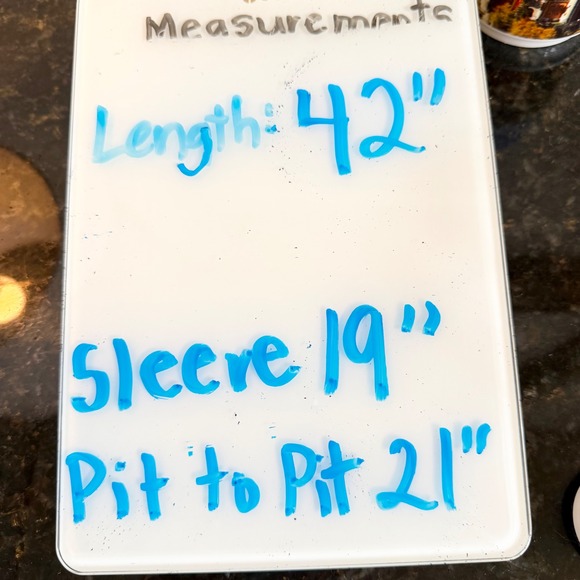 Measurements
Length: 42"
Sleeve 19"
Pit to Pit 21"